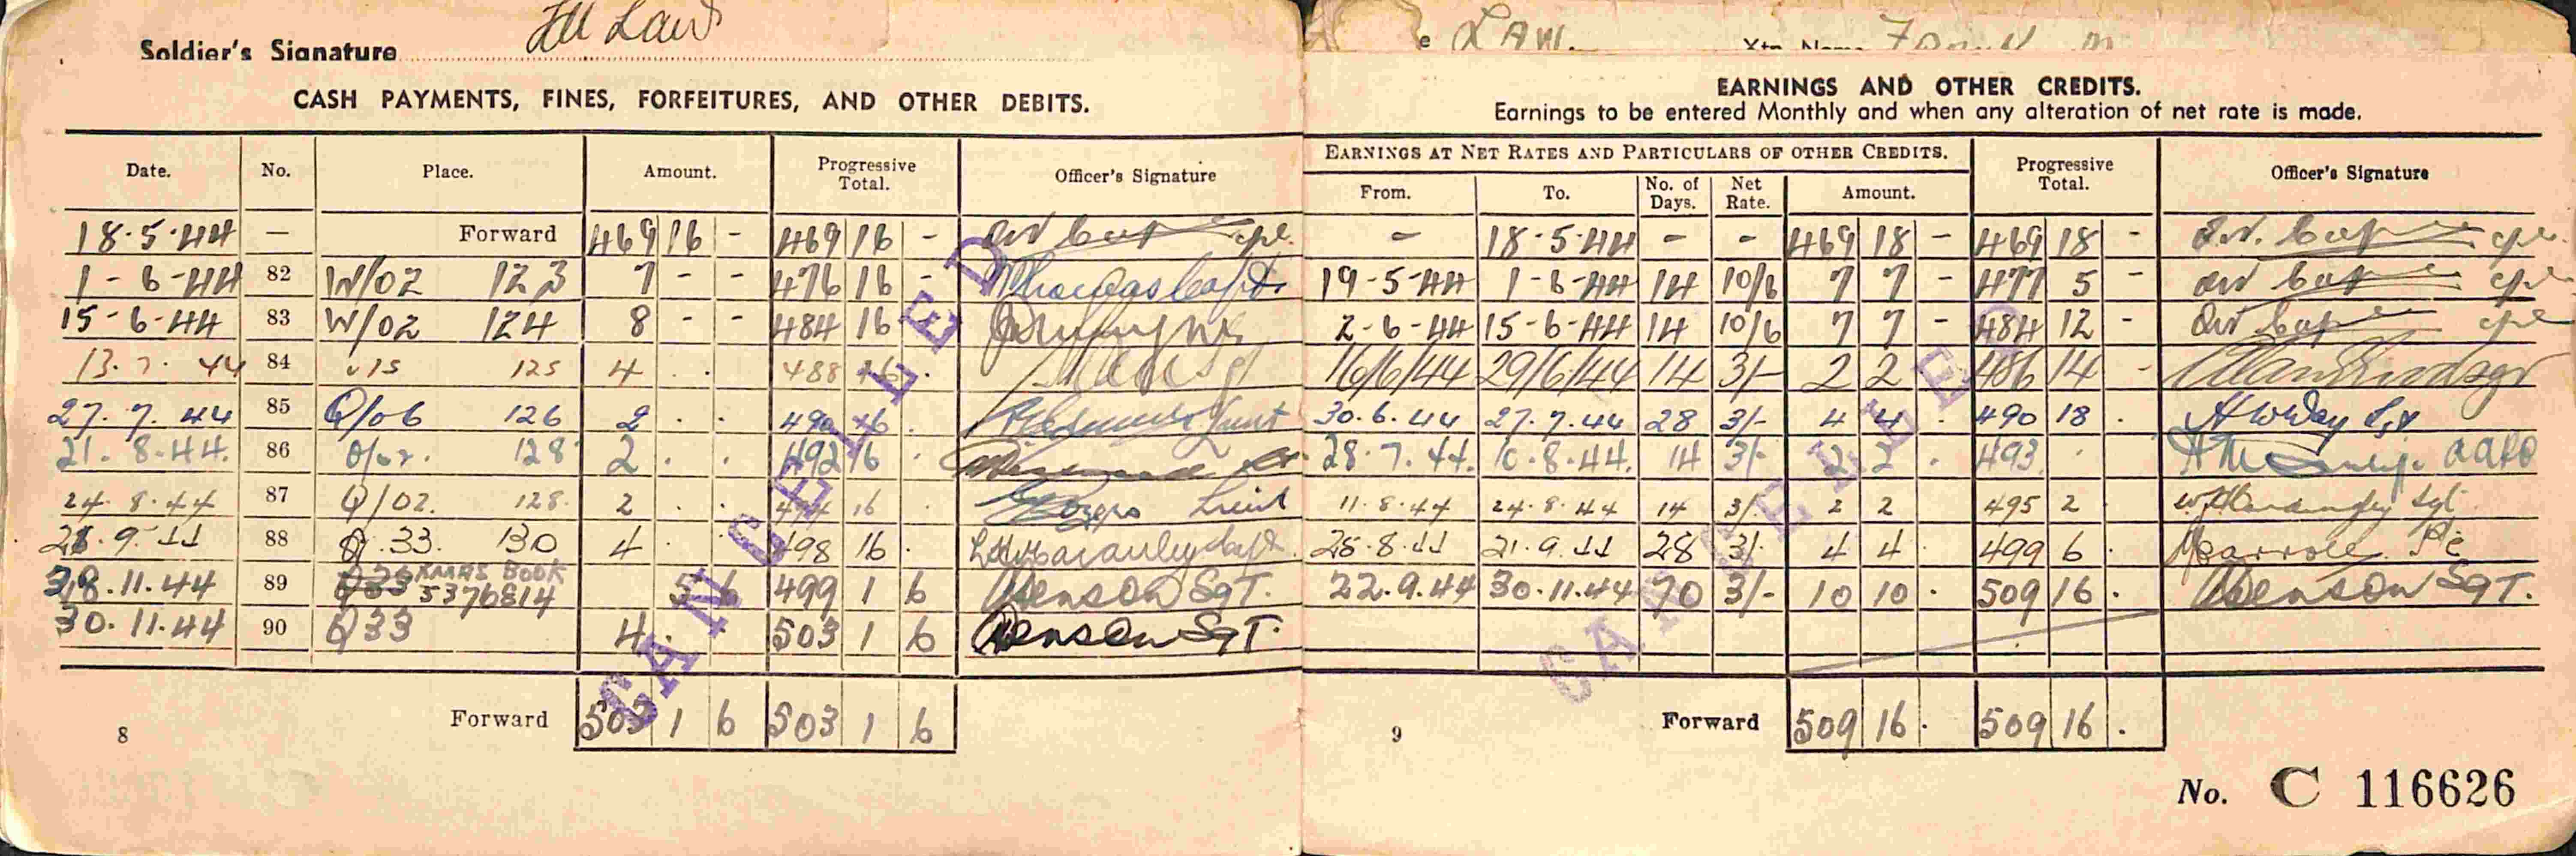 Soldier's Signature Law
CASH PAYMENTS, FINES, FORFEITURES, AND OTHER DEBITS.
Date. No. Place. Amount. Progressive Total. Officer's Signature
18·5·44 — Forward 469 16 - 469 16 - cpl.
1-6-44 82 W/02 123 7 - - 476 16 - Capt.
15-6-44 83 W/02 124 8 - - 484 16
13.7.44 84 125 4 . . 488 16 .
27.7.44 85 Q/06 126 2 . . 490 16 . Lieut
21.8.44. 86 128 2 . . 492 16 .
24.8.44 87 Q/02. 128. 2 . . 494 16 . Lieut
28.9.44 88 Q.33. 130 4 . . 498 16 .
28.11.44 89 XMAS BOOK 5376814 5 6 499 1 6 Benson SgT.
30.11.44 90 Q33 4 . . 503 1 6 Benson SgT.
Forward 503 1 6 503 1 6
8
LAW.
EARNINGS AND OTHER CREDITS.
Earnings to be entered Monthly and when any alteration of net rate is made.
EARNINGS AT NET RATES AND PARTICULARS OF OTHER CREDITS. Progressive Total. Officer's Signature
From. To. No. of Days. Net Rate. Amount.
- 18-5-44 - - 469 18 - 469 18 - cpl.
19-5-44 1-6-44 14 10/6 7 7 - 477 5 - cpl
2-6-44 15-6-44 14 10/6 7 7 - 484 12 - cpl
16/6/44 29/6/44 14 3/- 2 2 486 14 -
30.6.44 27.7.44 28 3/- 4 4 . 490 18 .
28.7.44. 10.8.44. 14 3/- 2 2 . 493 .
11.8.44 24.8.44 14 3/- 2 2 495 2 . Sgt
25.8.44 21.9.44 28 3/- 4 4 . 499 6 . Pte
22.9.44 30.11.44 70 3/- 10 10 . 509 16 . Benson SgT.
Forward 509 16 . 509 16 .
9
No. C 116626
CANCELLED
CANCELLED